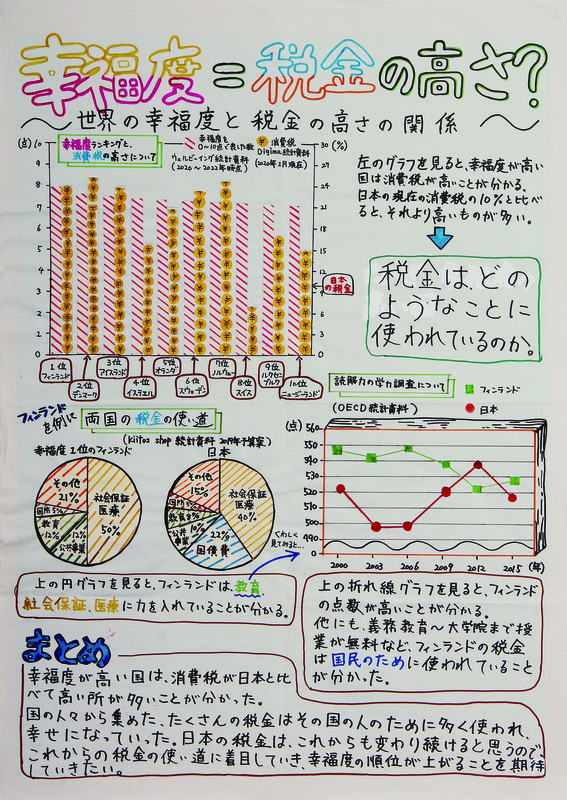 幸福度＝税金の高さ?
～世界の幸福度と税金の高さの関係～
(点)
10
9
8
7
6
5
4
3
2
1
0
幸福度ランキングと、
消費税の高さについて
幸福度を
0～10点で表した数
ウェルビーイング統計資料
(2020～2022年時点)
消費税
Digima統計資料
(2020年1月現在)
30(%)
27
24
21
18
15
12
9
6
3
0
日本
の税金
1位
フィンランド
2位
デンマーク
3位
アイスランド
4位
イスラエル
5位
オランダ
6位
スウェーデン
7位
ノルウェー
8位
スイス
9位
ルクセンブルク
10位
ニュージーランド
左のグラフを見ると、幸福度が高い
国は消費税が高いことが分かる。
日本の現在の消費税の10%と比べ
ると、それより高いものが多い。
税金は、どの
ようなことに
使われているのか。
フィンランド
を例に
両国の税金の使い道
(Kiitos shop 統計資料 2019年予算案)
幸福度1位のフィンランド
その他
21%
国防5%
教育
12%
12%
公共事業
社会保証
医療
50%
日本
その他
15%
国防5%
教育8%
公共
事業
10%
22%
国債費
社会保証
医療
40%
くわしく
見てみると…
読解力の学力調査について
(OECD統計資料)
フィンランド
日本
(点)
560
550
540
530
520
510
500
490
0
2000
2003
2006
2009
2012
2015
(年)
上の円グラフを見ると、フィンランドは、教育、
社会保証、医療に力を入れていることが分かる。
上の折れ線グラフを見ると、フィンランド
の点数が高いことが分かる。
他にも、義務教育～大学院まで授
業が無料など、フィンランドの税金
は国民のために使われていること
が分かった。
まとめ
幸福度が高い国は、消費税が日本と比
べて高い所が多いことが分かった。
国の人々から集めた、たくさんの税金はその国の人のために多く使われ、
幸せになっていった。日本の税金は、これからも変わり続けると思うので、
これからの税金の使い道に着目していき、幸福度の順位が上がることを期待
していきたい。